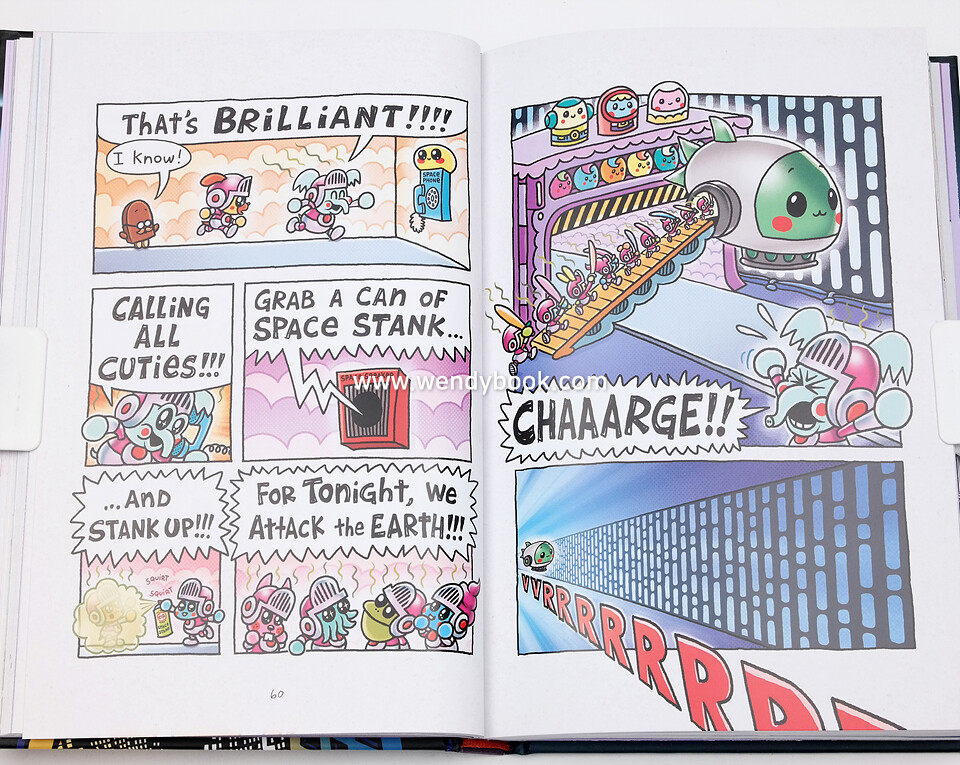 THAT'S BRILLIANT!!!!
I KNOW!
SPACE
PHONE
CALLING
ALL
CUTIES!!!
GRAB A CAN OF
SPACE STANK...
www.wendybook.com
...AND
STANK UP!!!
SQUIRT
SQUIRT
FOR TONIGHT, WE
ATTACK the EARTH!!!
60
CHAAARGE!!
VVRRRRRRRRR